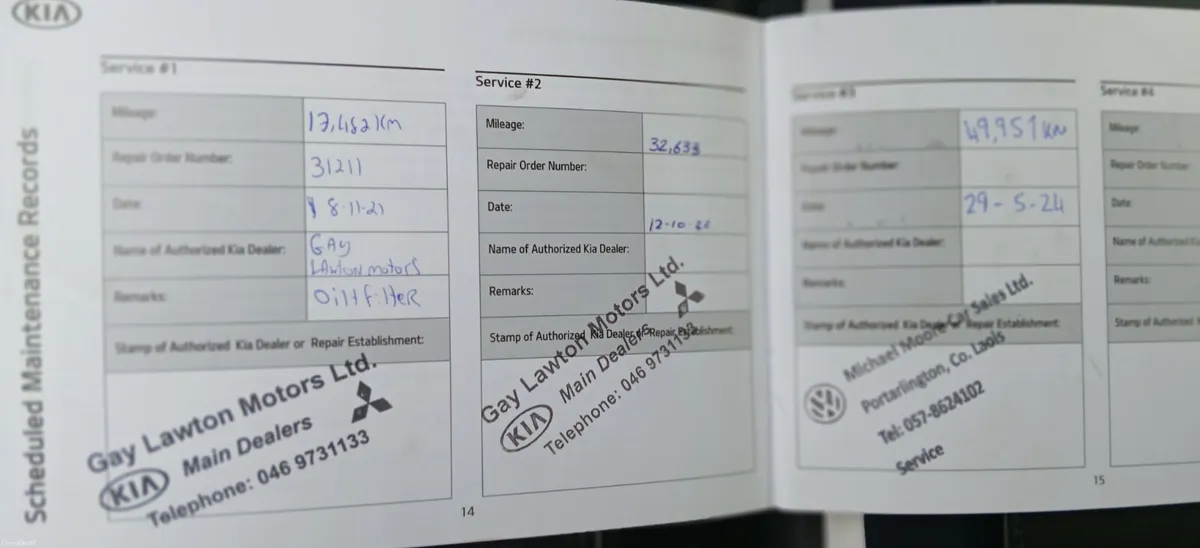 KIA
Scheduled Maintenance Records
Service #1
Mileage:
17,482 KM
Repair Order Number:
31211
Date:
8-11-21
Name of Authorized Kia Dealer:
GAY
LAWTON motors
Remarks:
Oil+filteR
Stamp of Authorized Kia Dealer or Repair Establishment:
Gay Lawton Motors Ltd.
KIA Main Dealers
Telephone: 046 9731133
Service #2
Mileage:
32,633
Repair Order Number:
Date:
12-10-22
Name of Authorized Kia Dealer:
Remarks:
Stamp of Authorized Kia Dealer or Repair Establishment:
Gay Lawton Motors Ltd.
KIA Main Dealers
Telephone: 046 9731133
14
Service #3
Mileage:
49,951 KM
Repair Order Number:
Date:
29-5-24
Name of Authorized Kia Dealer:
Remarks:
Stamp of Authorized Kia Dealer or Repair Establishment:
Michael Moore Car Sales Ltd.
Portarlington, Co. Laois
Tel: 057-8624102
Service
15
Service #4
Mileage:
Repair Order
Date:
Name of Authorized
Remarks:
Stamp of Authorized